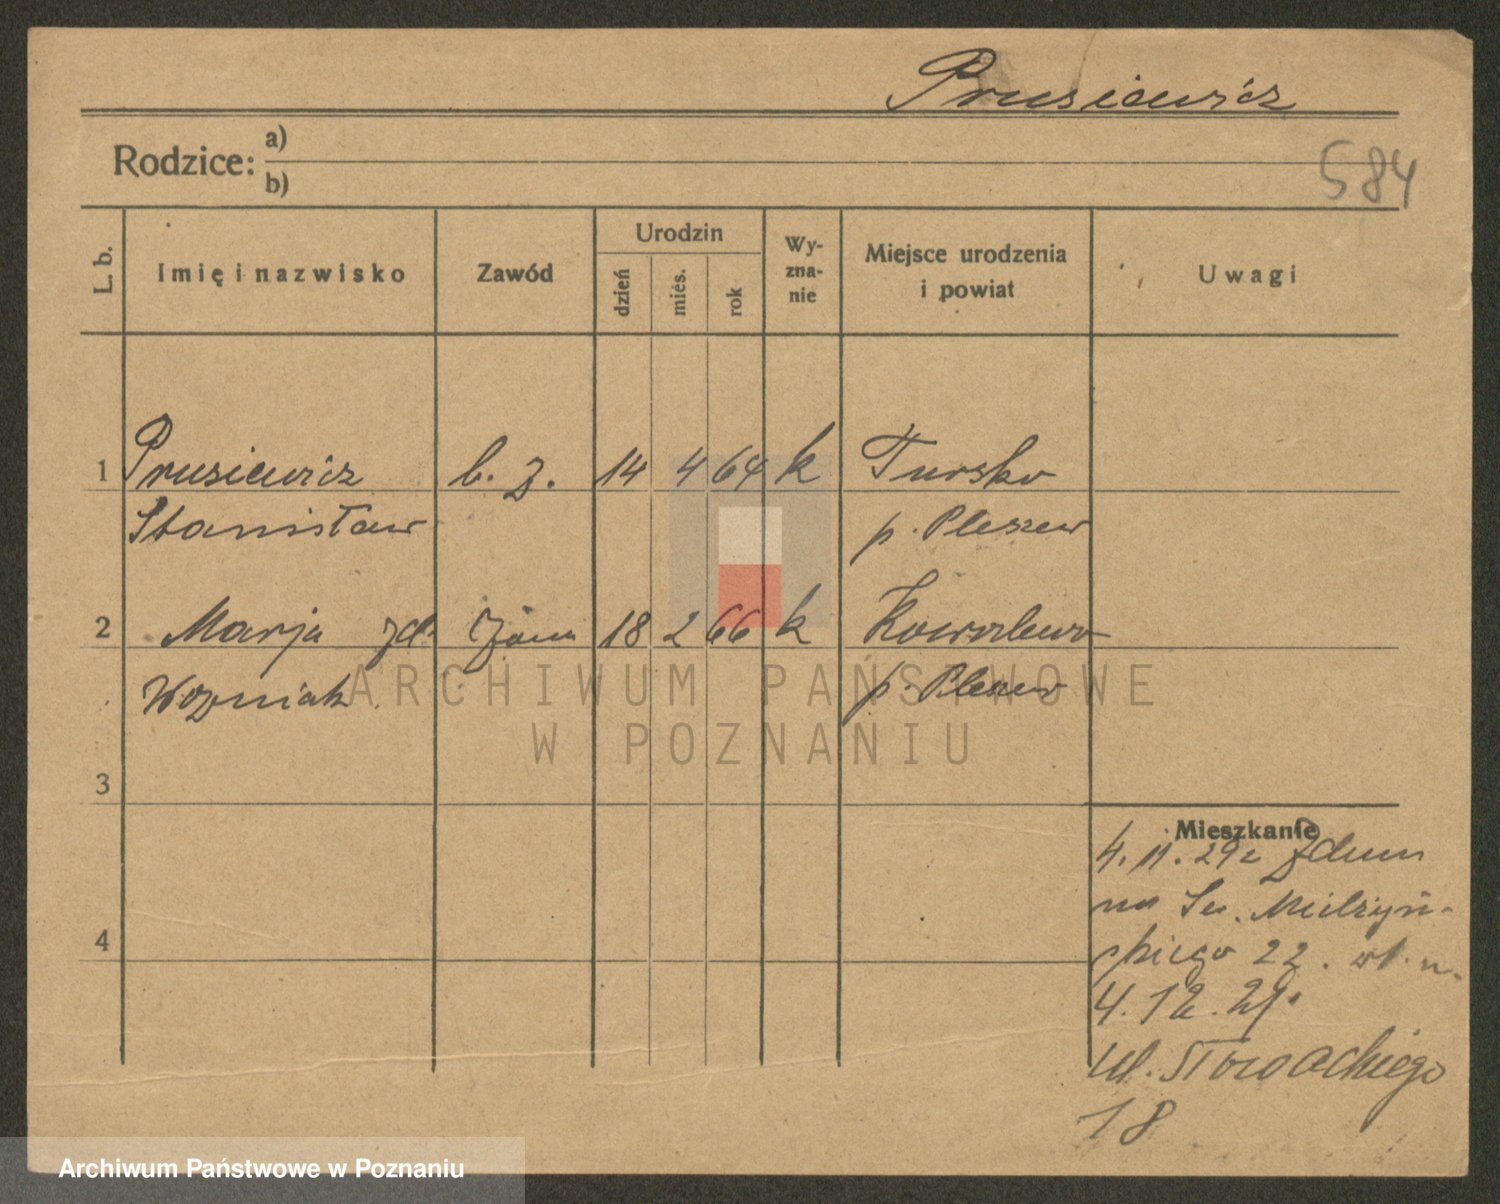 Prusiewicz
Rodzice: a)
b)
584
L. b.
Imię i nazwisko
Zawód
Urodzin
dzień
mies.
rok
Wy-
zna-
nie
Miejsce urodzenia
i powiat
Uwagi
1 Prusiewicz b. z. 14 4 64 k Tursko
Stanisław p. Pleszew
2 Marja zd. żona 18 2 66 k Kowalewo
Wozniak p. Pleszew
3
4
Mieszkanie
4. 11. 29 z Zdun
na Mielżyń-
skiego 22.
4. 12. 29.
ul. Słowackiego
18
ARCHIWUM PAŃSTWOWE
W POZNANIU
Archiwum Państwowe w Poznaniu